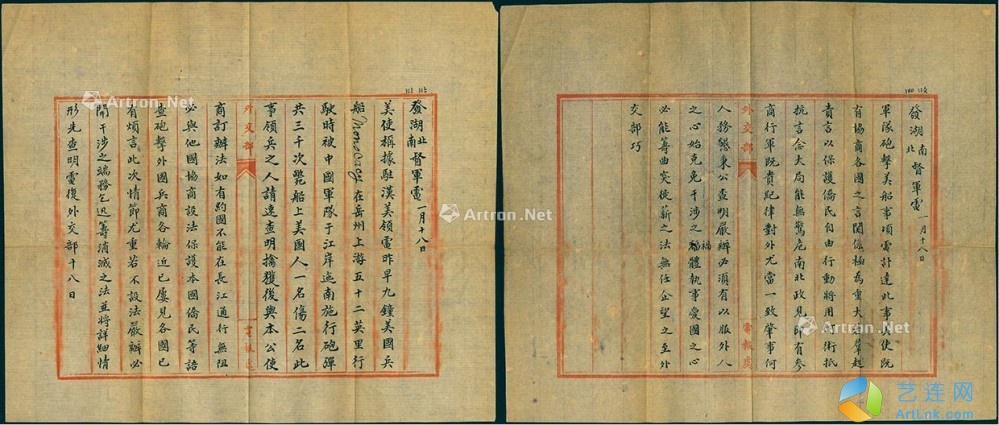 發湖北南督軍電 一月十八日
美使稱據駐漢美領電昨早九鐘美國兵
船Monocacy在岳州上游五十二英里行
駛時被中國軍隊于江岸迤南施行砲彈
共三千次斃船上美國人一名傷二名此
事領兵之人請速查明擒獲後與本公使
外交部
商訂辦法如有約國不能在長江通行無阻
必與他國協商設法保護本國僑民等語
查砲擊外國兵商各輪近已屢見各國已
有煩言此次情節尤重若不設法嚴辦必
開干涉之端務乞迅籌消滅之法並將詳細情
形先查明電復外交部十八日
發湖南北督軍電 一月十八日
軍隊砲擊美船事頃電計達此事美使既
有協商各國之言關係極為重大若羣起
責言以保護僑民自由行動將用何術抵
抗言念大局能無驚危南北政見即有參
商行軍既貴紀律對外尤當一致肇事何
外交部
電報處
人務懇秉公查明嚴辦必須有以服外人
之心始克免干涉之禍體執事愛國之心
福
必能籌曲突徙薪之法無任企望之至外
交部巧
Artron.Net
Artron.Net
Artron.Net
Artron.Net
Artron.Net
艺连网
ArtLnk.com